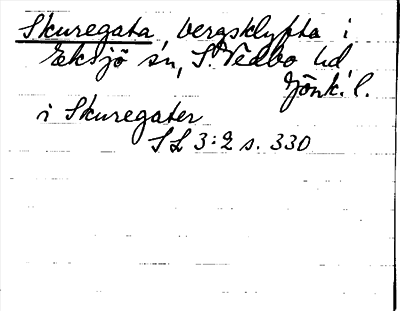 Skuregata, bergsklyfta i
Eksjö sn, S. Vedbo hd
Jönk. l.
i Skuregater
SL 3:2 s. 330